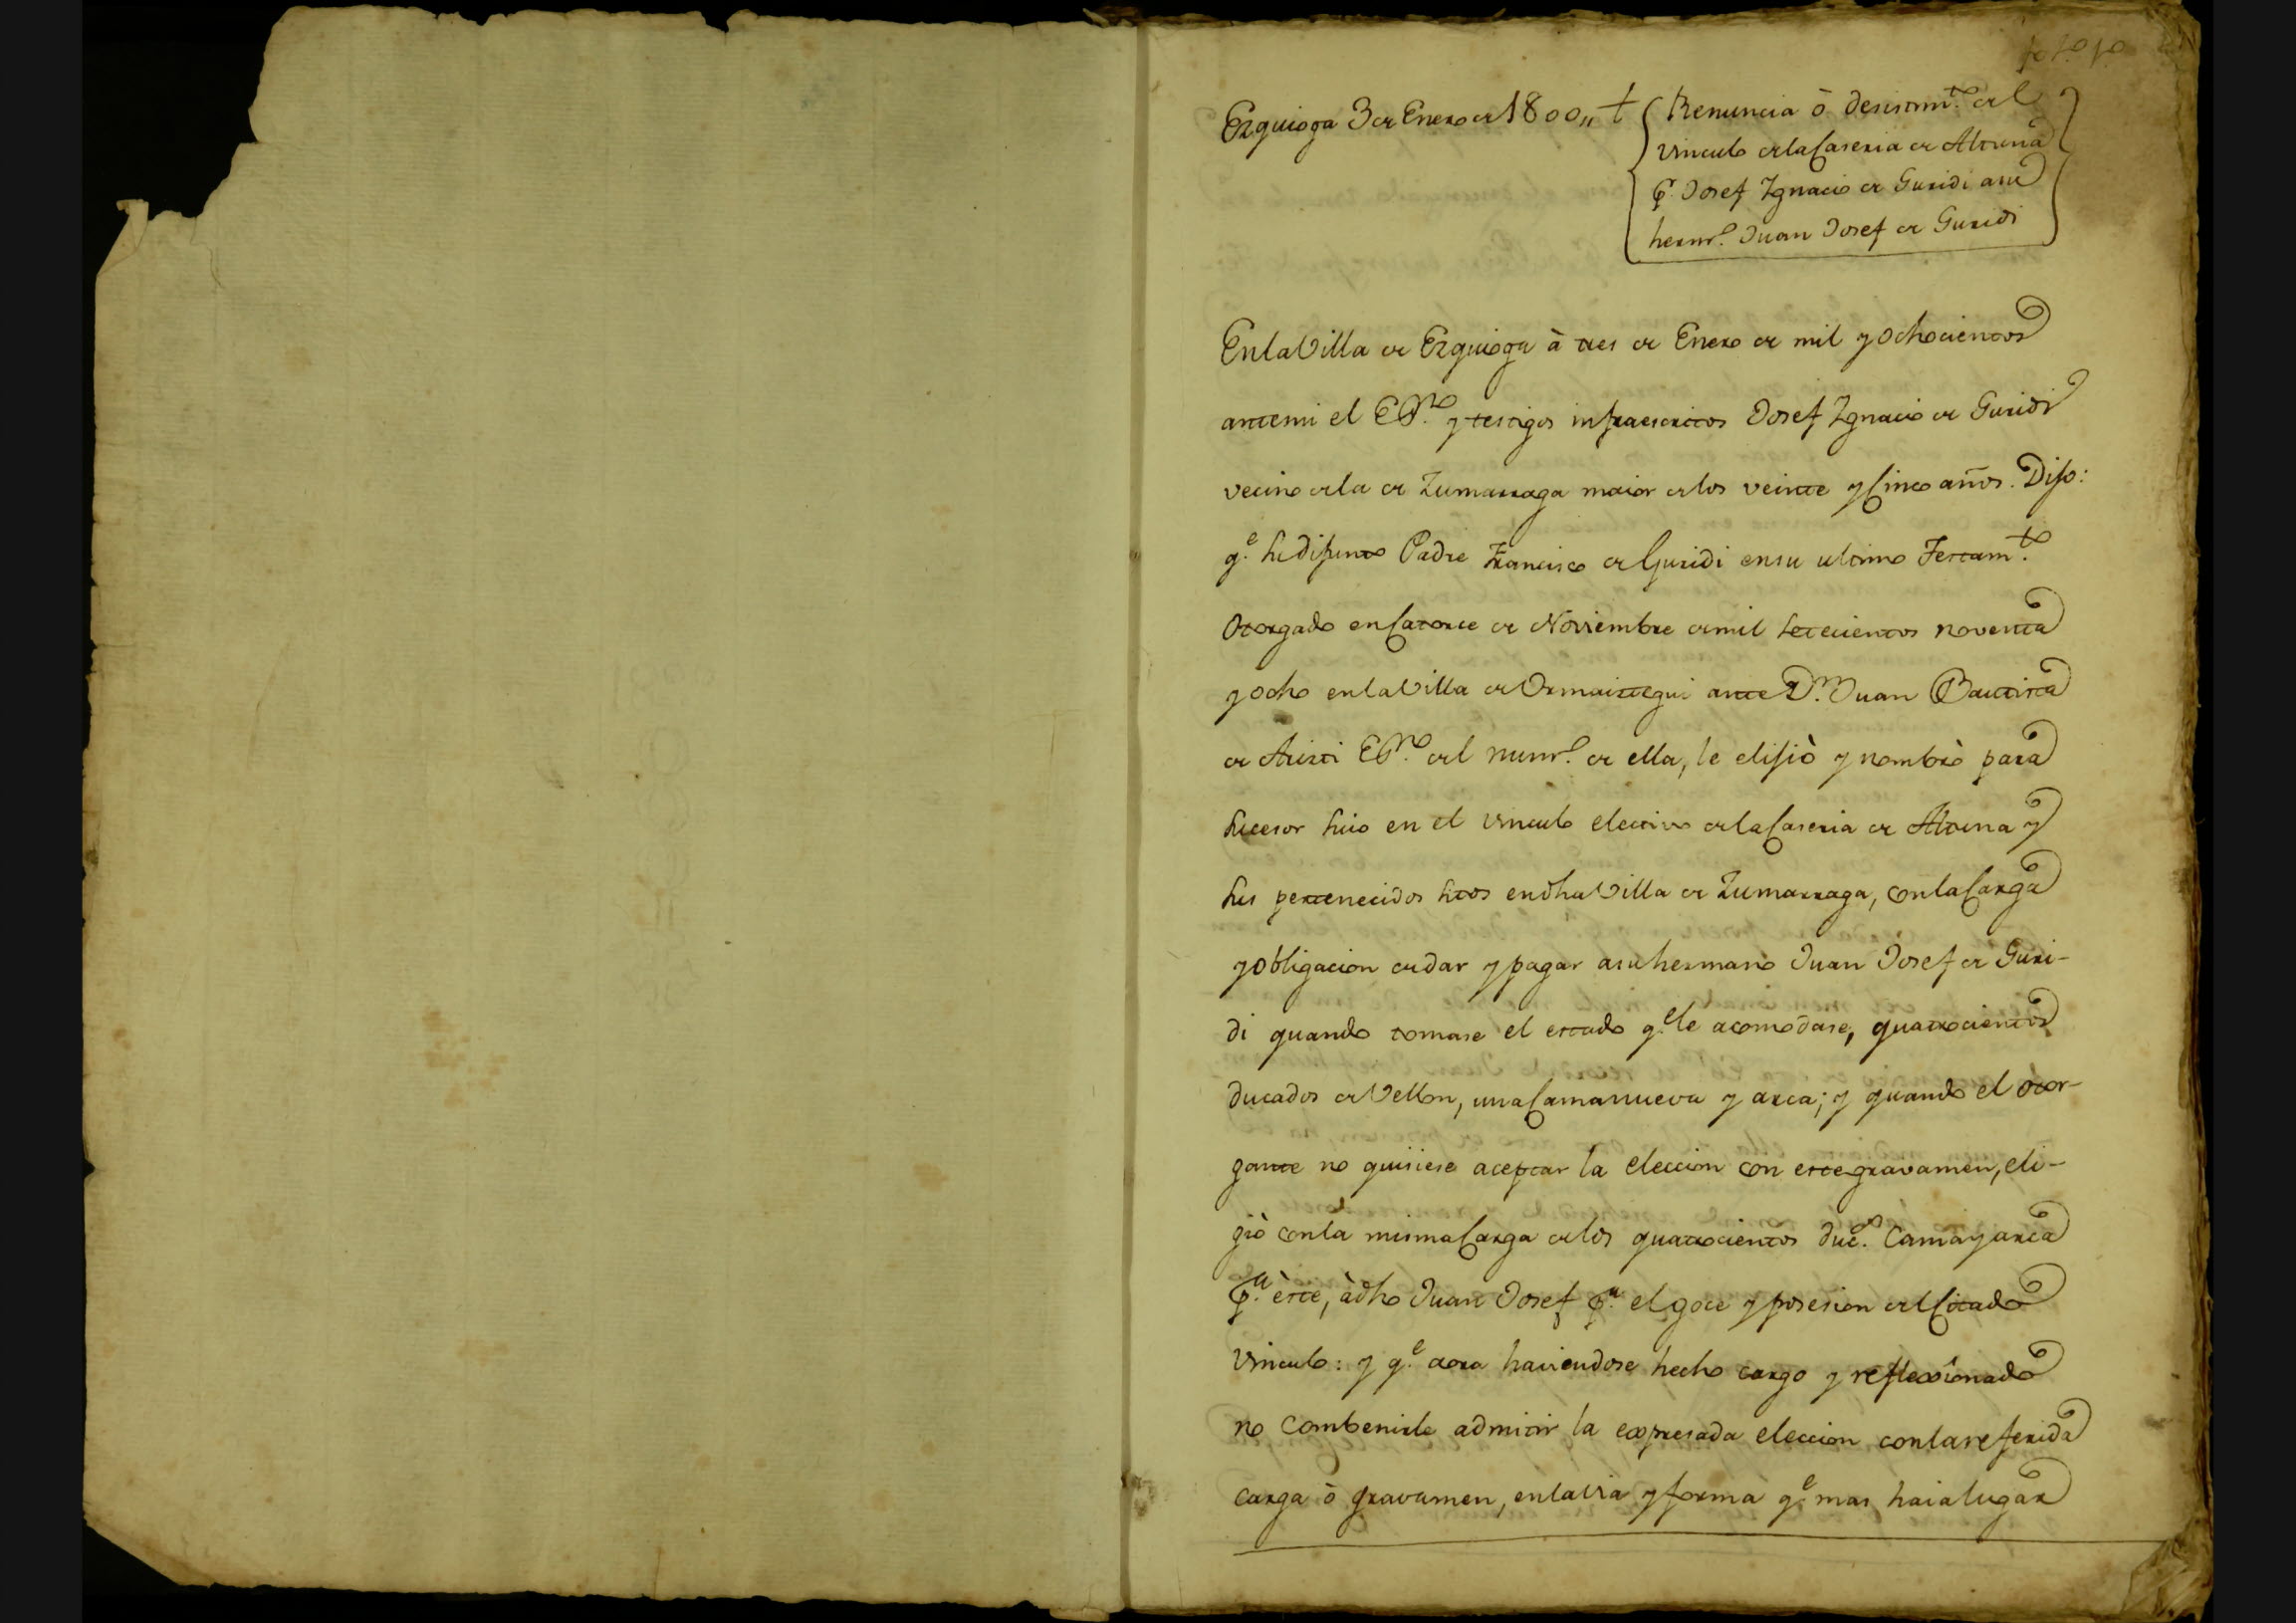 Ezquioga 3 de Enero de 1800,, †
Renuncia ò desistim.to del
vinculo de la Caseria de Altuna
p.r Josef Ygnacio de Guridi a su
herm.o Juan Josef de Guridi
En la Villa de Ezquioga à tres de Enero de mil y ochocientos
ante mi el Es.no y testigos infraescritos Josef Ygnacio de Guridi
vecino de la de Zumarraga maior de los veinte y Cinco años. Dijo:
q.e su difunto Padre Francisco de Guridi en su ultimo Testam.to
Otorgado en Catorce de Noviembre de mil setecientos noventa
y ocho en la Villa de Ormaiztegui ante D.n Juan Bautista
de Aristi Es.no del num.o de ella, le elijiò y nombrò para
sucesor suio en el vinculo electivo de la Caseria de Altuna y
sus pertenecidos sitos en dha Villa de Zumarraga, con la Carga
y obligacion de dar y pagar a su hermano Juan Josef de Guri-
di quando tomase el estado q.e le acomodase, quatrocientos
ducados de Vellon, una Cama nueva y arca; y quando el otor-
gante no quisiese aceptar la eleccion con este gravamen, eli-
giò con la misma Carga de los quatrocientos duc.s Cama y arca
p.a èste, à dho Juan Josef p.a el goce y posesion del Citado
Vinculo: y q.e aora haviendose hecho cargo y reflexionado
no combenirle admitir la expresada eleccion con la referida
carga ò gravamen, en la via y forma q.e mas haia lugar